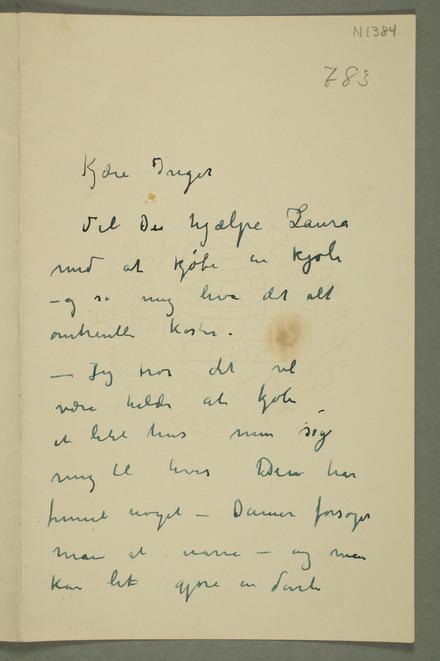 N1384
783
Kjære Inger
Vil De hjælpe Laura
med at kjøbe en kjole
– og si mig hva det alt
omtrentlig koster.
– Jeg tror det vil
være heldig at kjøbe
et lidet hus men sig
mig til hvis De har
fundet noget – Damer forsøger
man at narre – og man
kan let gjøre en dårlig